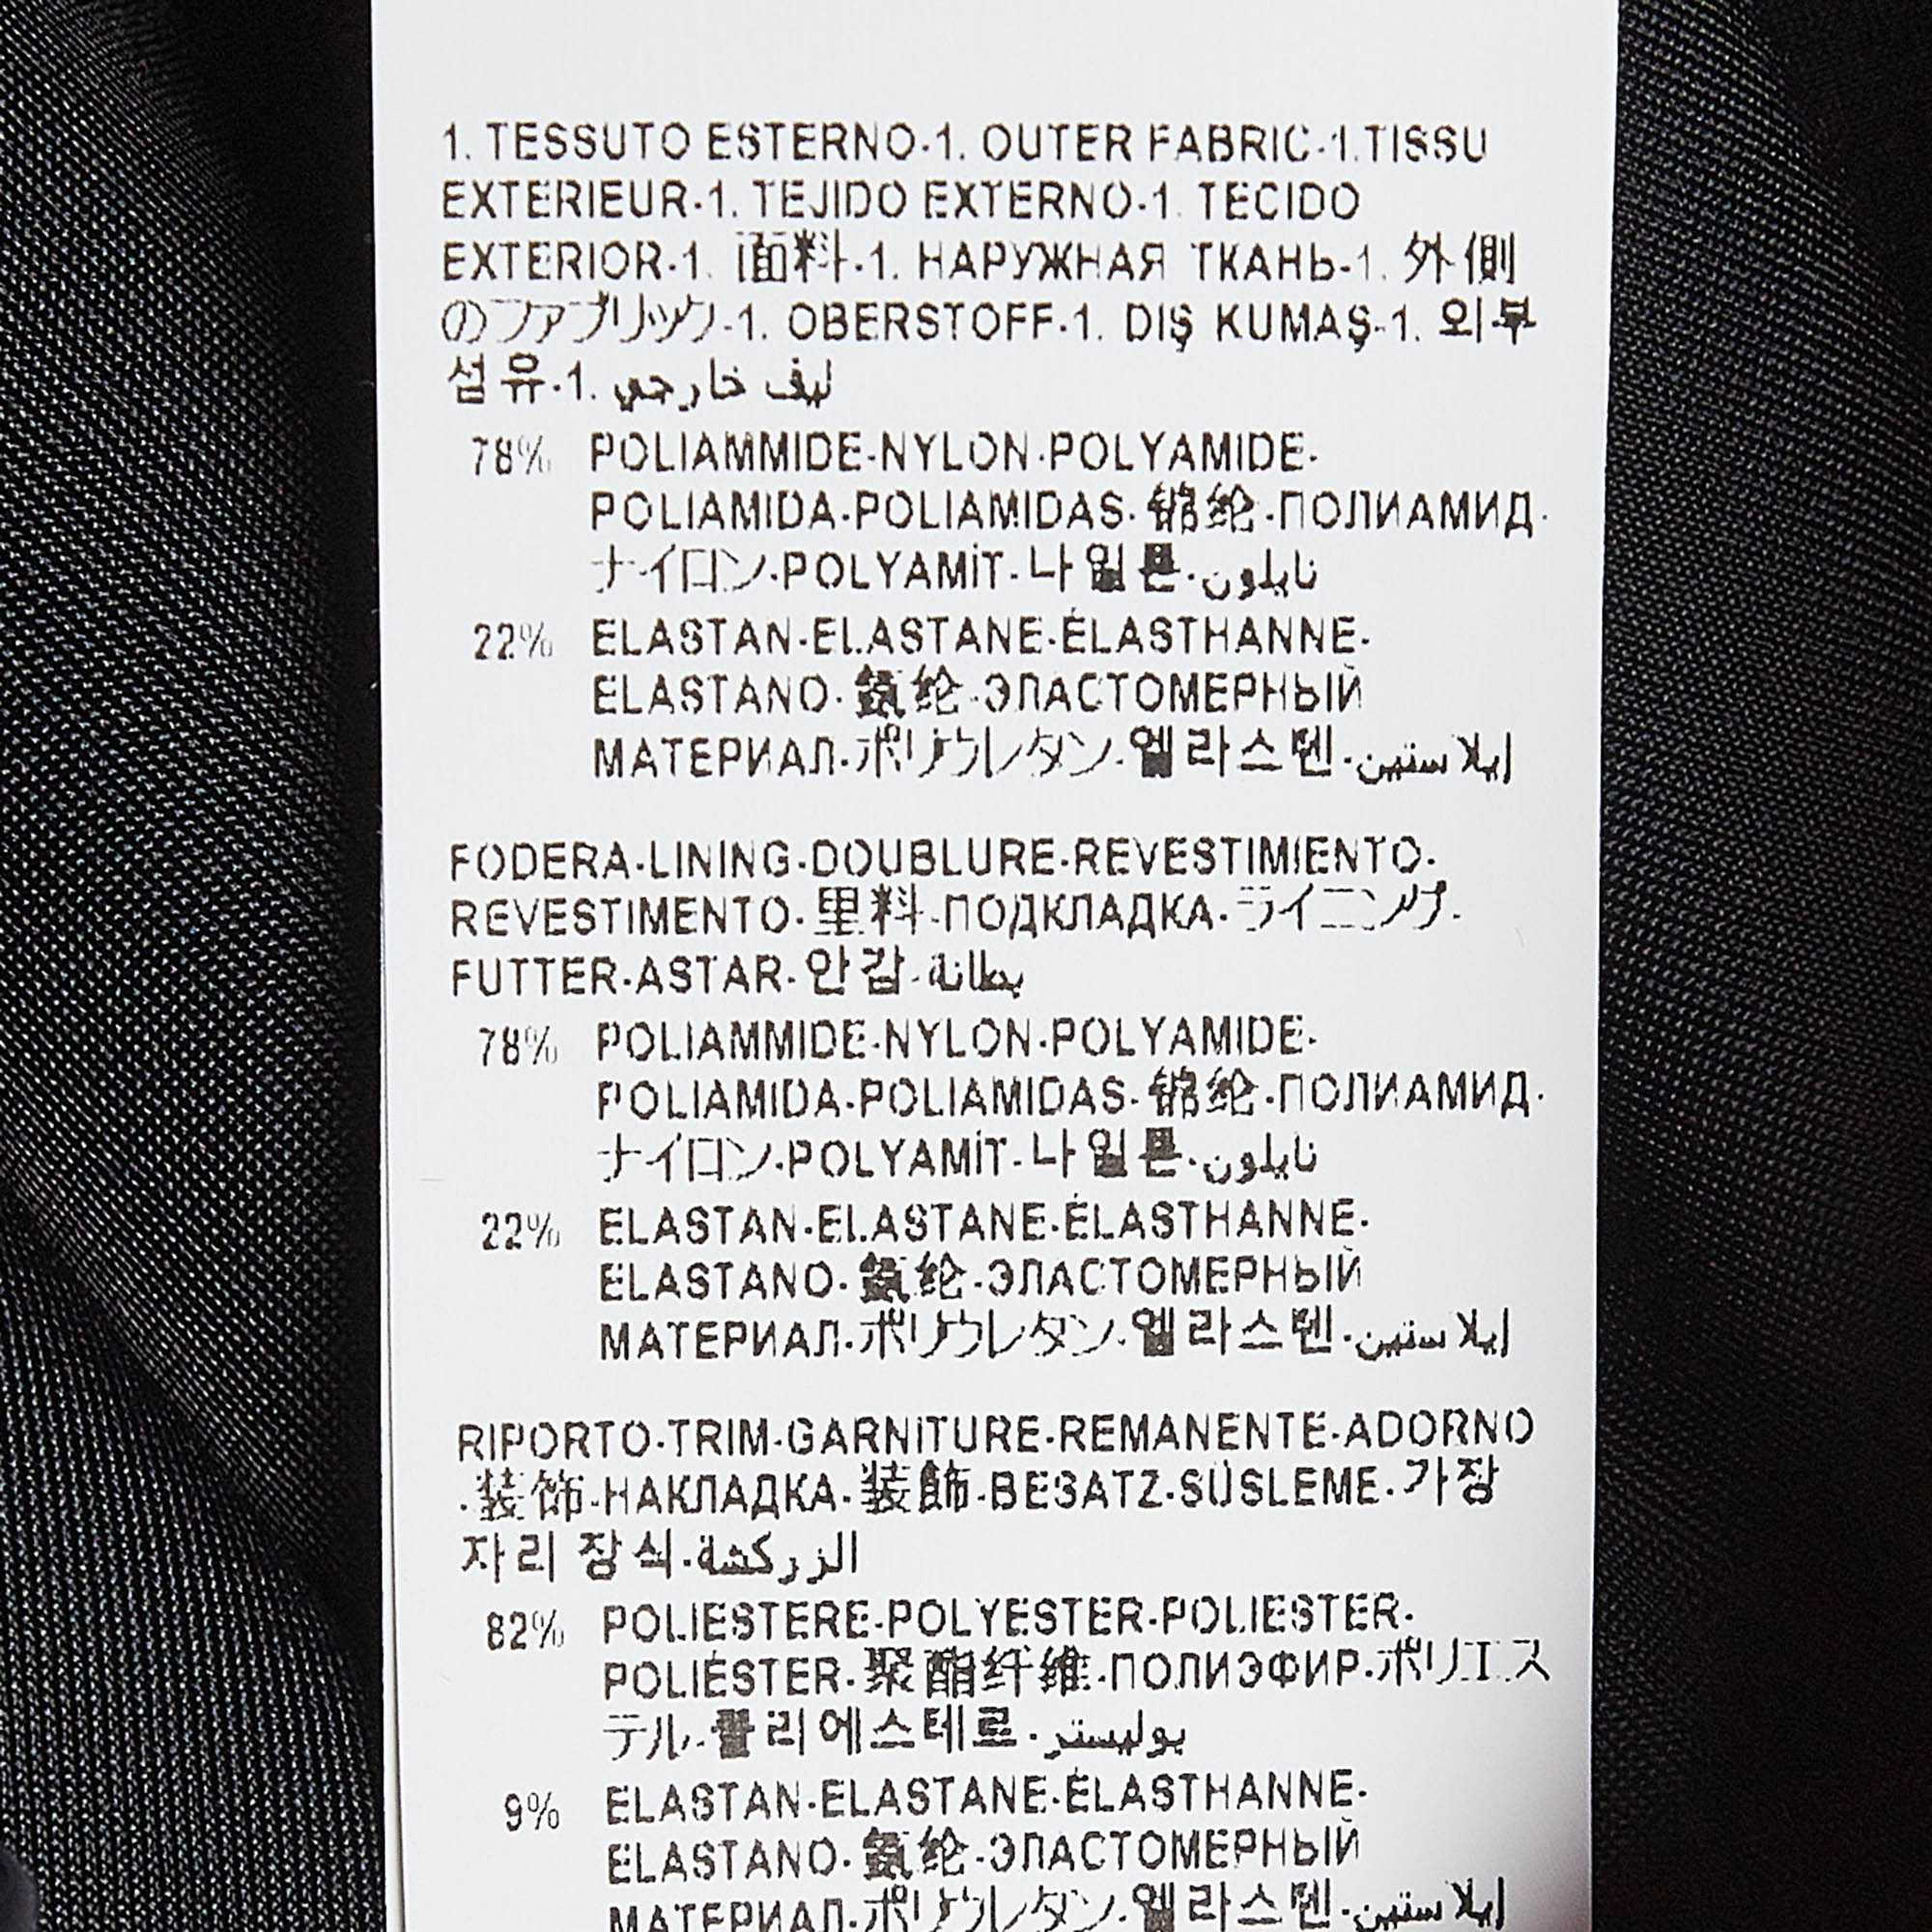 1. TESSUTO ESTERNO-1. OUTER FABRIC-1.TISSU
EXTERIEUR-1. TEJIDO EXTERNO-1. TECIDO
EXTERIOR-1. 面料-1. НАРУЖНАЯ ТКАНЬ-1. 外側
のファブリック-1. OBERSTOFF-1. DIŞ KUMAŞ-1. 외부
섬유-1. ليف خارجي
78% POLIAMMIDE-NYLON-POLYAMIDE-
POLIAMIDA-POLIAMIDAS-锦纶-ПОЛИАМИД-
ナイロン-POLYAMİT-나일론-نايلون
22% ELASTAN-ELASTANE-ÉLASTHANNE-
ELASTANO-氨纶-ЭЛАСТОМЕРНЫЙ
МАТЕРИАЛ-ポリウレタン-엘라스텐-إيلاستين
FODERA-LINING-DOUBLURE-REVESTIMIENTO-
REVESTIMENTO-里料-ПОДКЛАДКА-ライニング-
FUTTER-ASTAR-안감-بطانة
78% POLIAMMIDE-NYLON-POLYAMIDE-
POLIAMIDA-POLIAMIDAS-锦纶-ПОЛИАМИД-
ナイロン-POLYAMİT-나일론-نايلون
22% ELASTAN-ELASTANE-ÉLASTHANNE-
ELASTANO-氨纶-ЭЛАСТОМЕРНЫЙ
МАТЕРИАЛ-ポリウレタン-엘라스텐-إيلاستين
RIPORTO-TRIM-GARNITURE-REMANENTE-ADORNO
-装饰-НАКЛАДКА-装飾-BESATZ-SÜSLEME-가장
자리 장식-الزركشة
82% POLIESTERE-POLYESTER-POLIESTER-
POLIÉSTER-聚酯纤维-ПОЛИЭФИР-ポリエス
テル-폴리에스테르-بوليستر
9% ELASTAN-ELASTANE-ÉLASTHANNE-
ELASTANO-氨纶-ЭЛАСТОМЕРНЫЙ
МАТЕРИАЛ-ポリウレタン-엘라스텐-إيلاستين